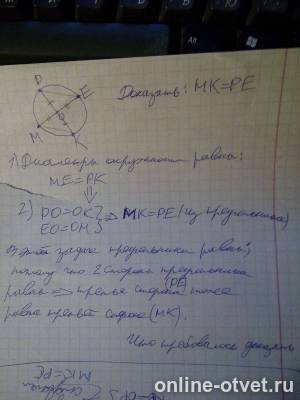 P
E
M
K
O
Доказать: MK=PE
1) Диаметры окружности равны:
ME=PK
⇓
2) PO=OK } ⇒ MK=PE (из треугольника)
EO=OM
В этой задаче треугольники равны,
потому что 2 стороны треугольника
равны ⇒ третья сторона (PE) тоже
равна третьей стороне (MK).
Что требовалось доказать
MK=PE
online-otvet.ru